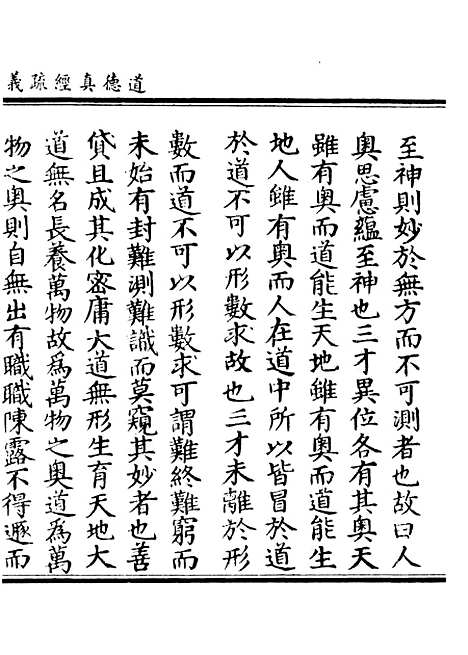 道德真經疏義
至神則妙於無方而不可測者也故曰人
奧思慮蘊至神也三才異位各有其奧天
雖有奧而道能生天地雖有奧而道能生
地人雖有奧而人在道中所以皆冒於道
於道不可以形數求故也三才未離於形
數而道不可以形數求可謂難終難窮而
未始有封難測難識而莫窺其妙者也善
貸且成其化密庸大道無形生育天地大
道無名長養萬物故為萬物之奧道為萬
物之奧則自無出有職職陳露不得遯而